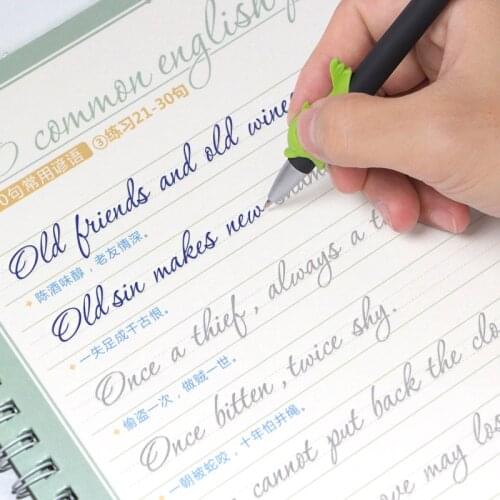 common english
0句常用谚语 ③练习21-30句
Old friends and old wines
陈酒味醇，老友情深。
Old sin makes new shame
一失足成千古恨。
Once a thief, always a t
偷盗一次，做贼一世。
Once bitten, twice shy.
一朝被蛇咬，十年怕井绳。
cannot put back the clo
ve may los